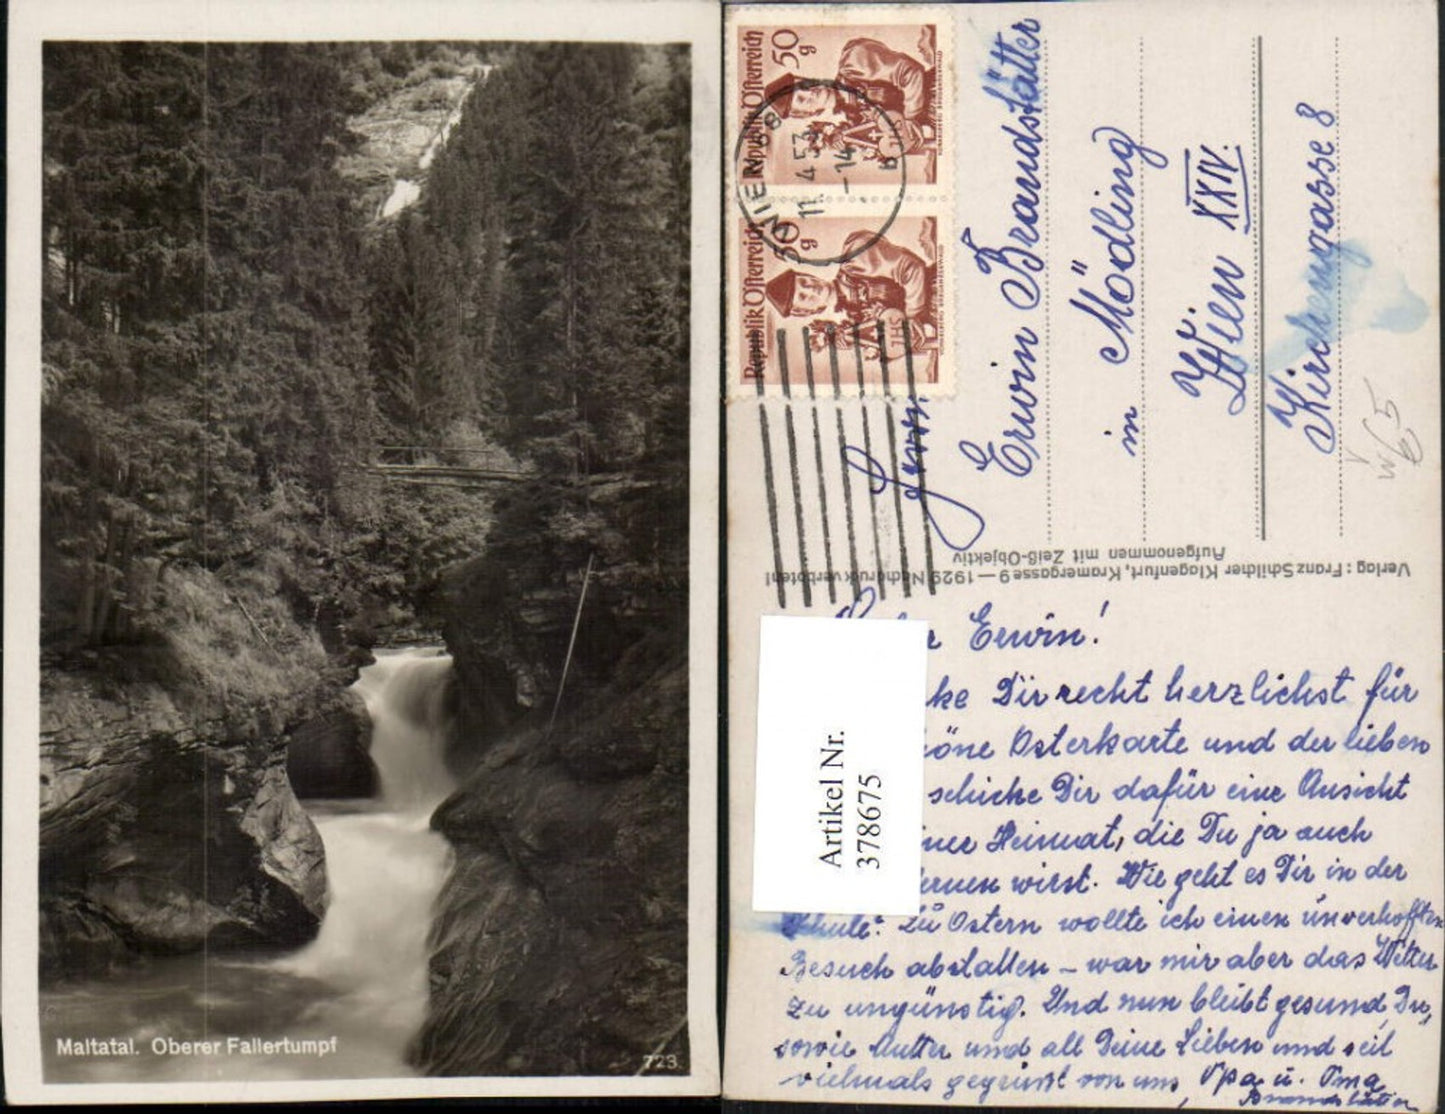 Maltatal. Oberer Fallertumpf
723.
Republik Österreich
50 g
Republik Österreich
50 g
WIEN 68
11. 4. 53
-14
Erwin Brandstätter
in Mödling
Wien XXIV.
Kirchengasse 8
W65
Verlag: Franz Schilcher Klagenfurt, Kramergasse 9 — 1929 Nachdruck verboten!
Aufgenommen mit Zeiß-Objektiv
Erwin!
ke Dir recht herzlichst für
öne Osterkarte und der lieben
schicke Dir dafür eine Ansicht
iner Heimat, die Du ja auch
ernen wirst. Wie geht es Dir in der
Schule? Zu Ostern wollte ich einen unverhofften
Besuch abstatten – war mir aber das Wetter
zu ungünstig. Und nun bleibt gesund, Du,
sowie Mutter und all Deine Lieben und seil
vielmals gegrüsst von uns, Opa u. Oma
Brandstätter
Artikel Nr.
378675